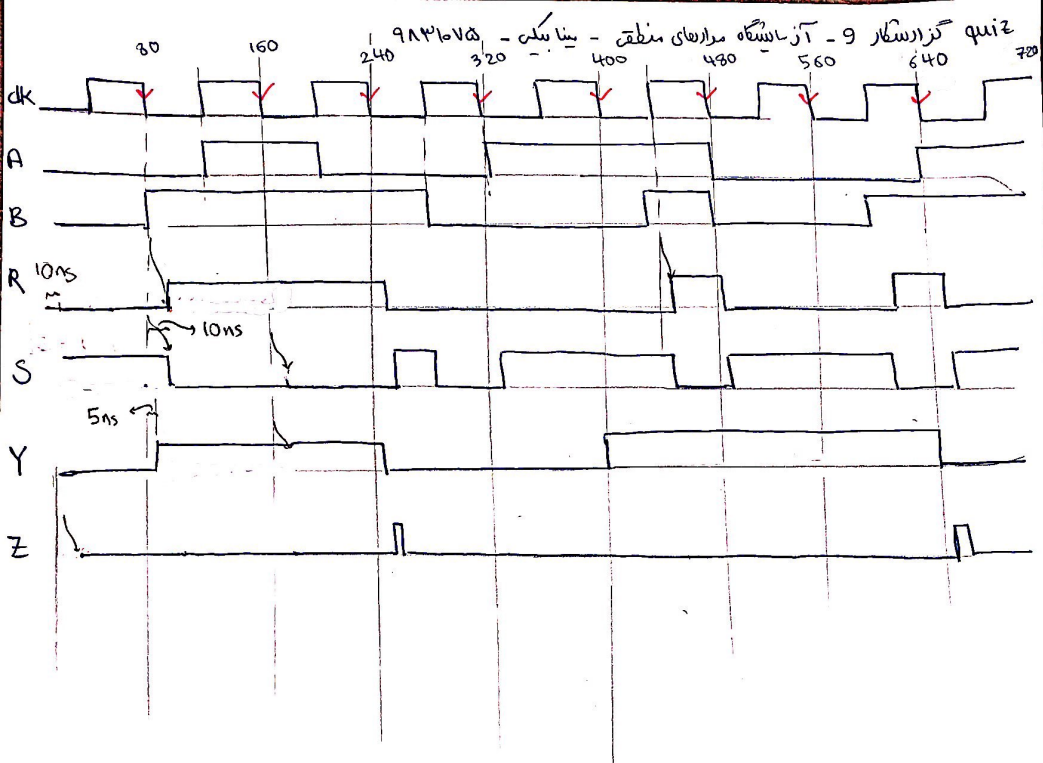 quiz گزارشکار 9 - آزمایشگاه مدارهای منطقی - مینا بیکی - ۹۸۳۱۰۷۵
80 160 240 320 400 480 560 640 720
clk
A
B
R 10ns
10ns
S
5ns
Y
Z